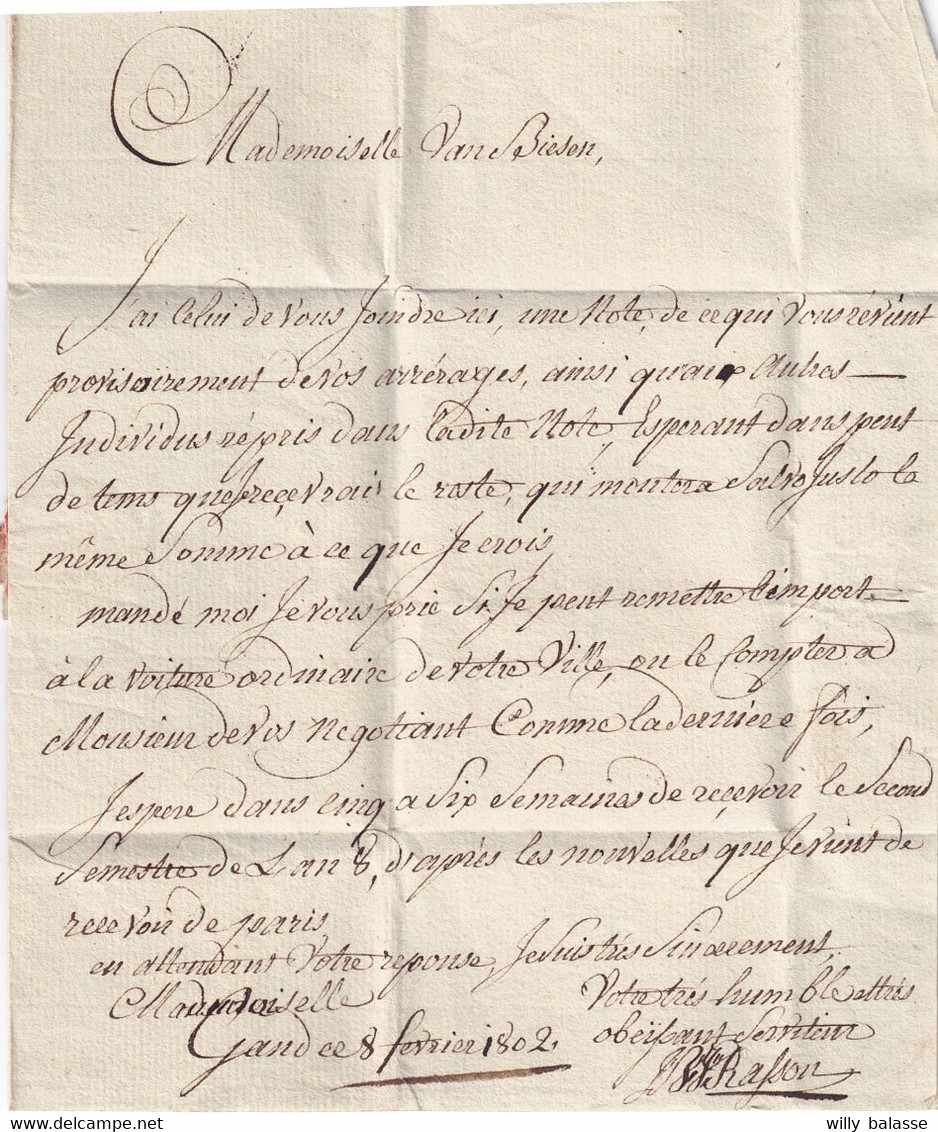 Mademoiselle Van Biesen,
J'ai Celui de vous Joindre ici, une Note, de ce qui Vous révient
provisoirement de vos arrérages, ainsi qu'aux Autres
Individus répris dans ladite Note, Esperant dans peut
de tems que Je reçevrai le reste, qui montera Salvo Justo le
même Somme à ce que Je crois,
mandé moi Je vous prie Si Je peut remettre l'import
à la voiture ordinaire de votre Ville, ou le Compter a
Monsieur de Vos Negotiant Comme la derniére fois,
J'espere dans Cinq a Six Semaines de reçevoir le Second
Semestre de L'an 8, d'aprés les nouvelles que Je vient de
recevoir de paris
en attendant Votre reponse, Je Suis trés Sincerement,
Mademoiselle
Votre trés humble et trés
obeïssant Serviteur
Gand ce 8 fevrier 1802
Rasson
willy balasse